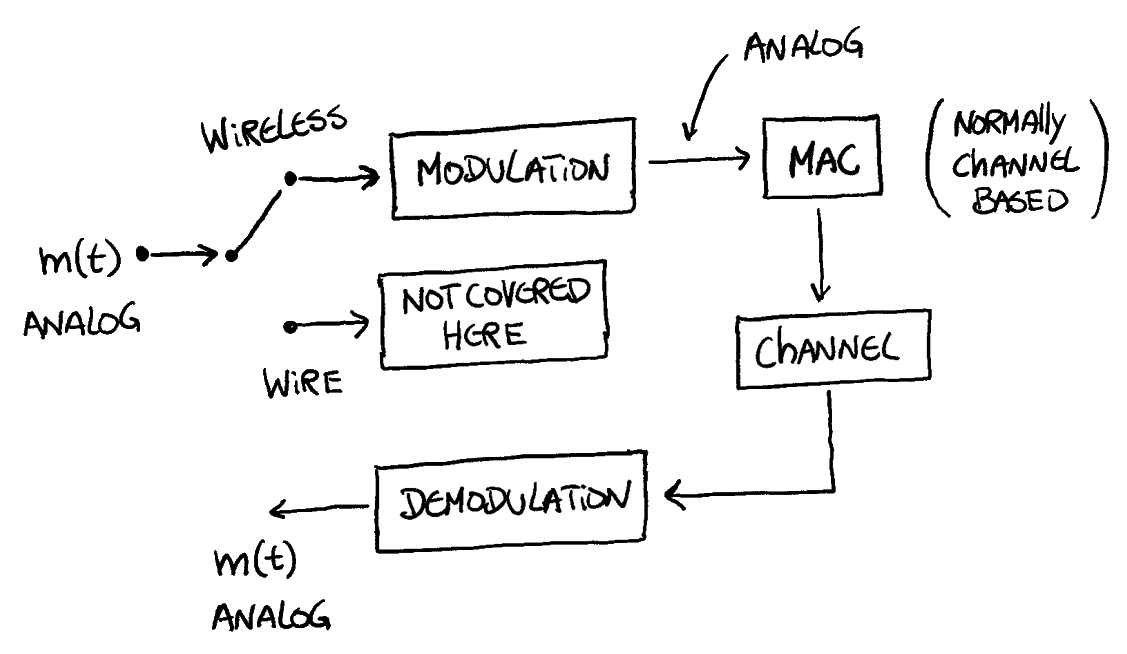 ANALOG
WiRELESS
MODULATION
MAC
(NORMAlly
ChANNEL
BASED)
m(t)
ANALOG
NOT COVERED
HERE
WiRE
ChANNEL
DEMODULATiON
m(t)
ANALOG